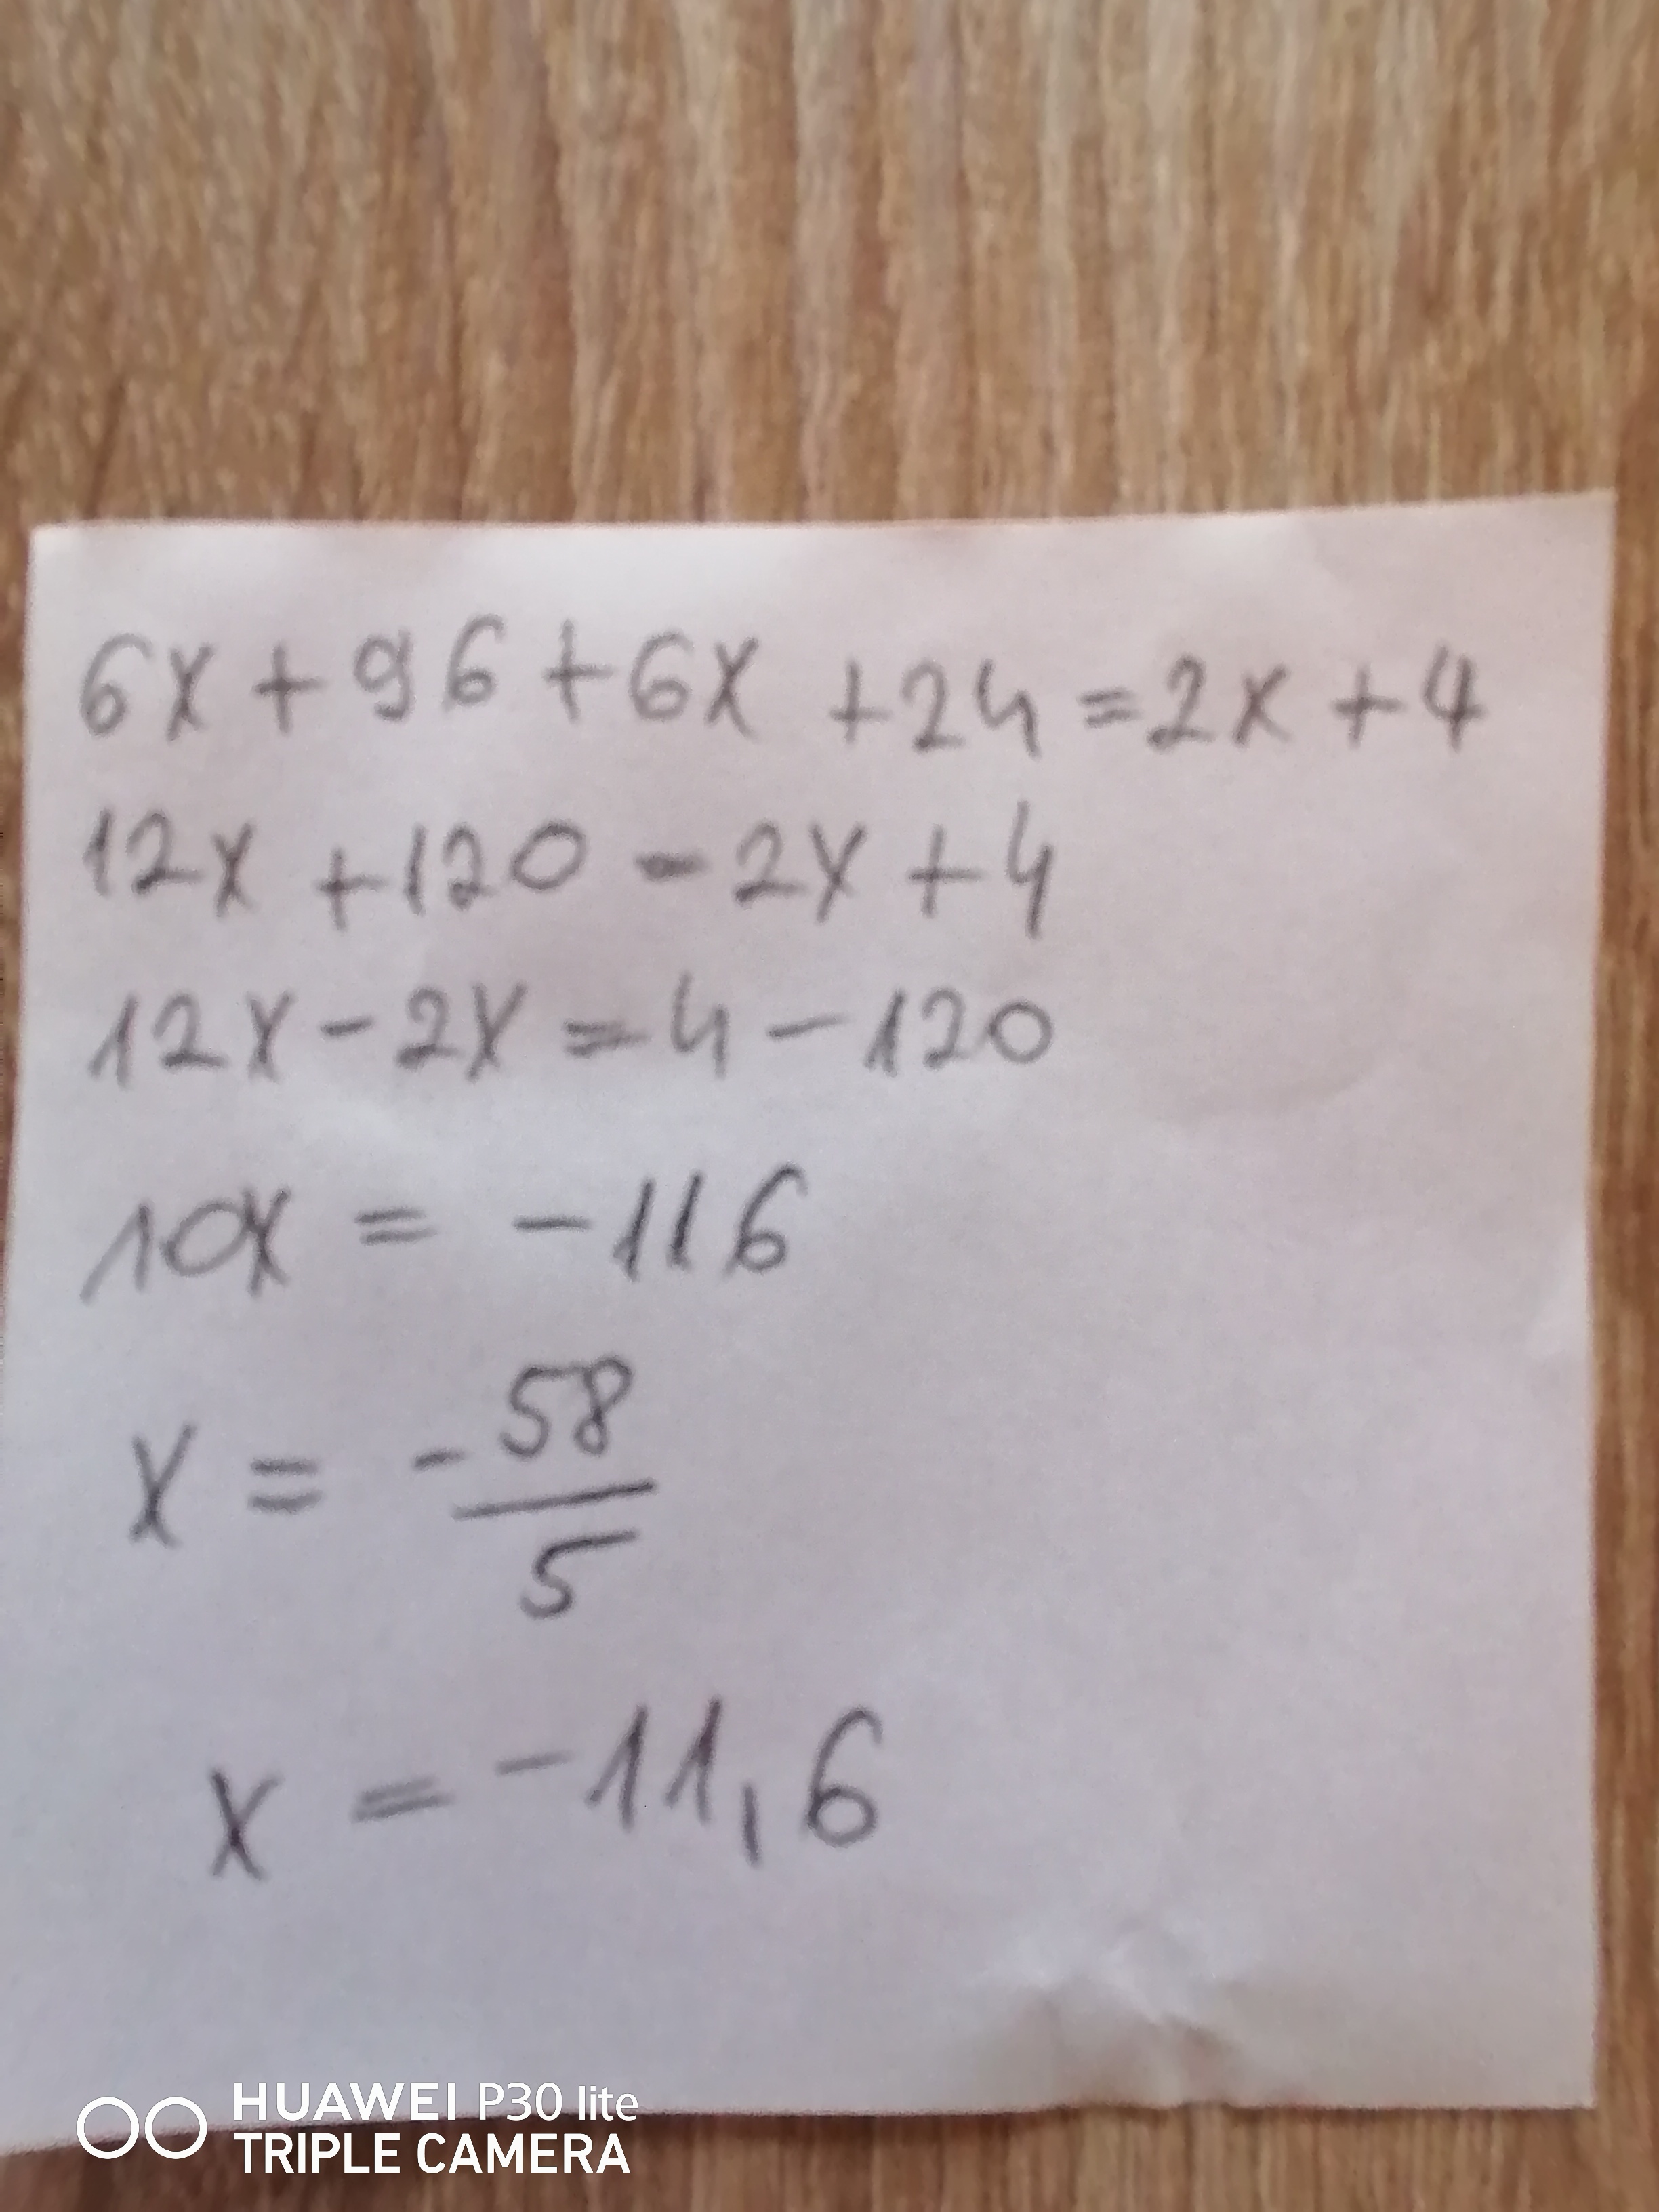 6x + 96 + 6x + 24 = 2x + 4
12x + 120 = 2x + 4
12x - 2x = 4 - 120
10x = -116
x = -58/5
x = -11,6
HUAWEI P30 lite
TRIPLE CAMERA